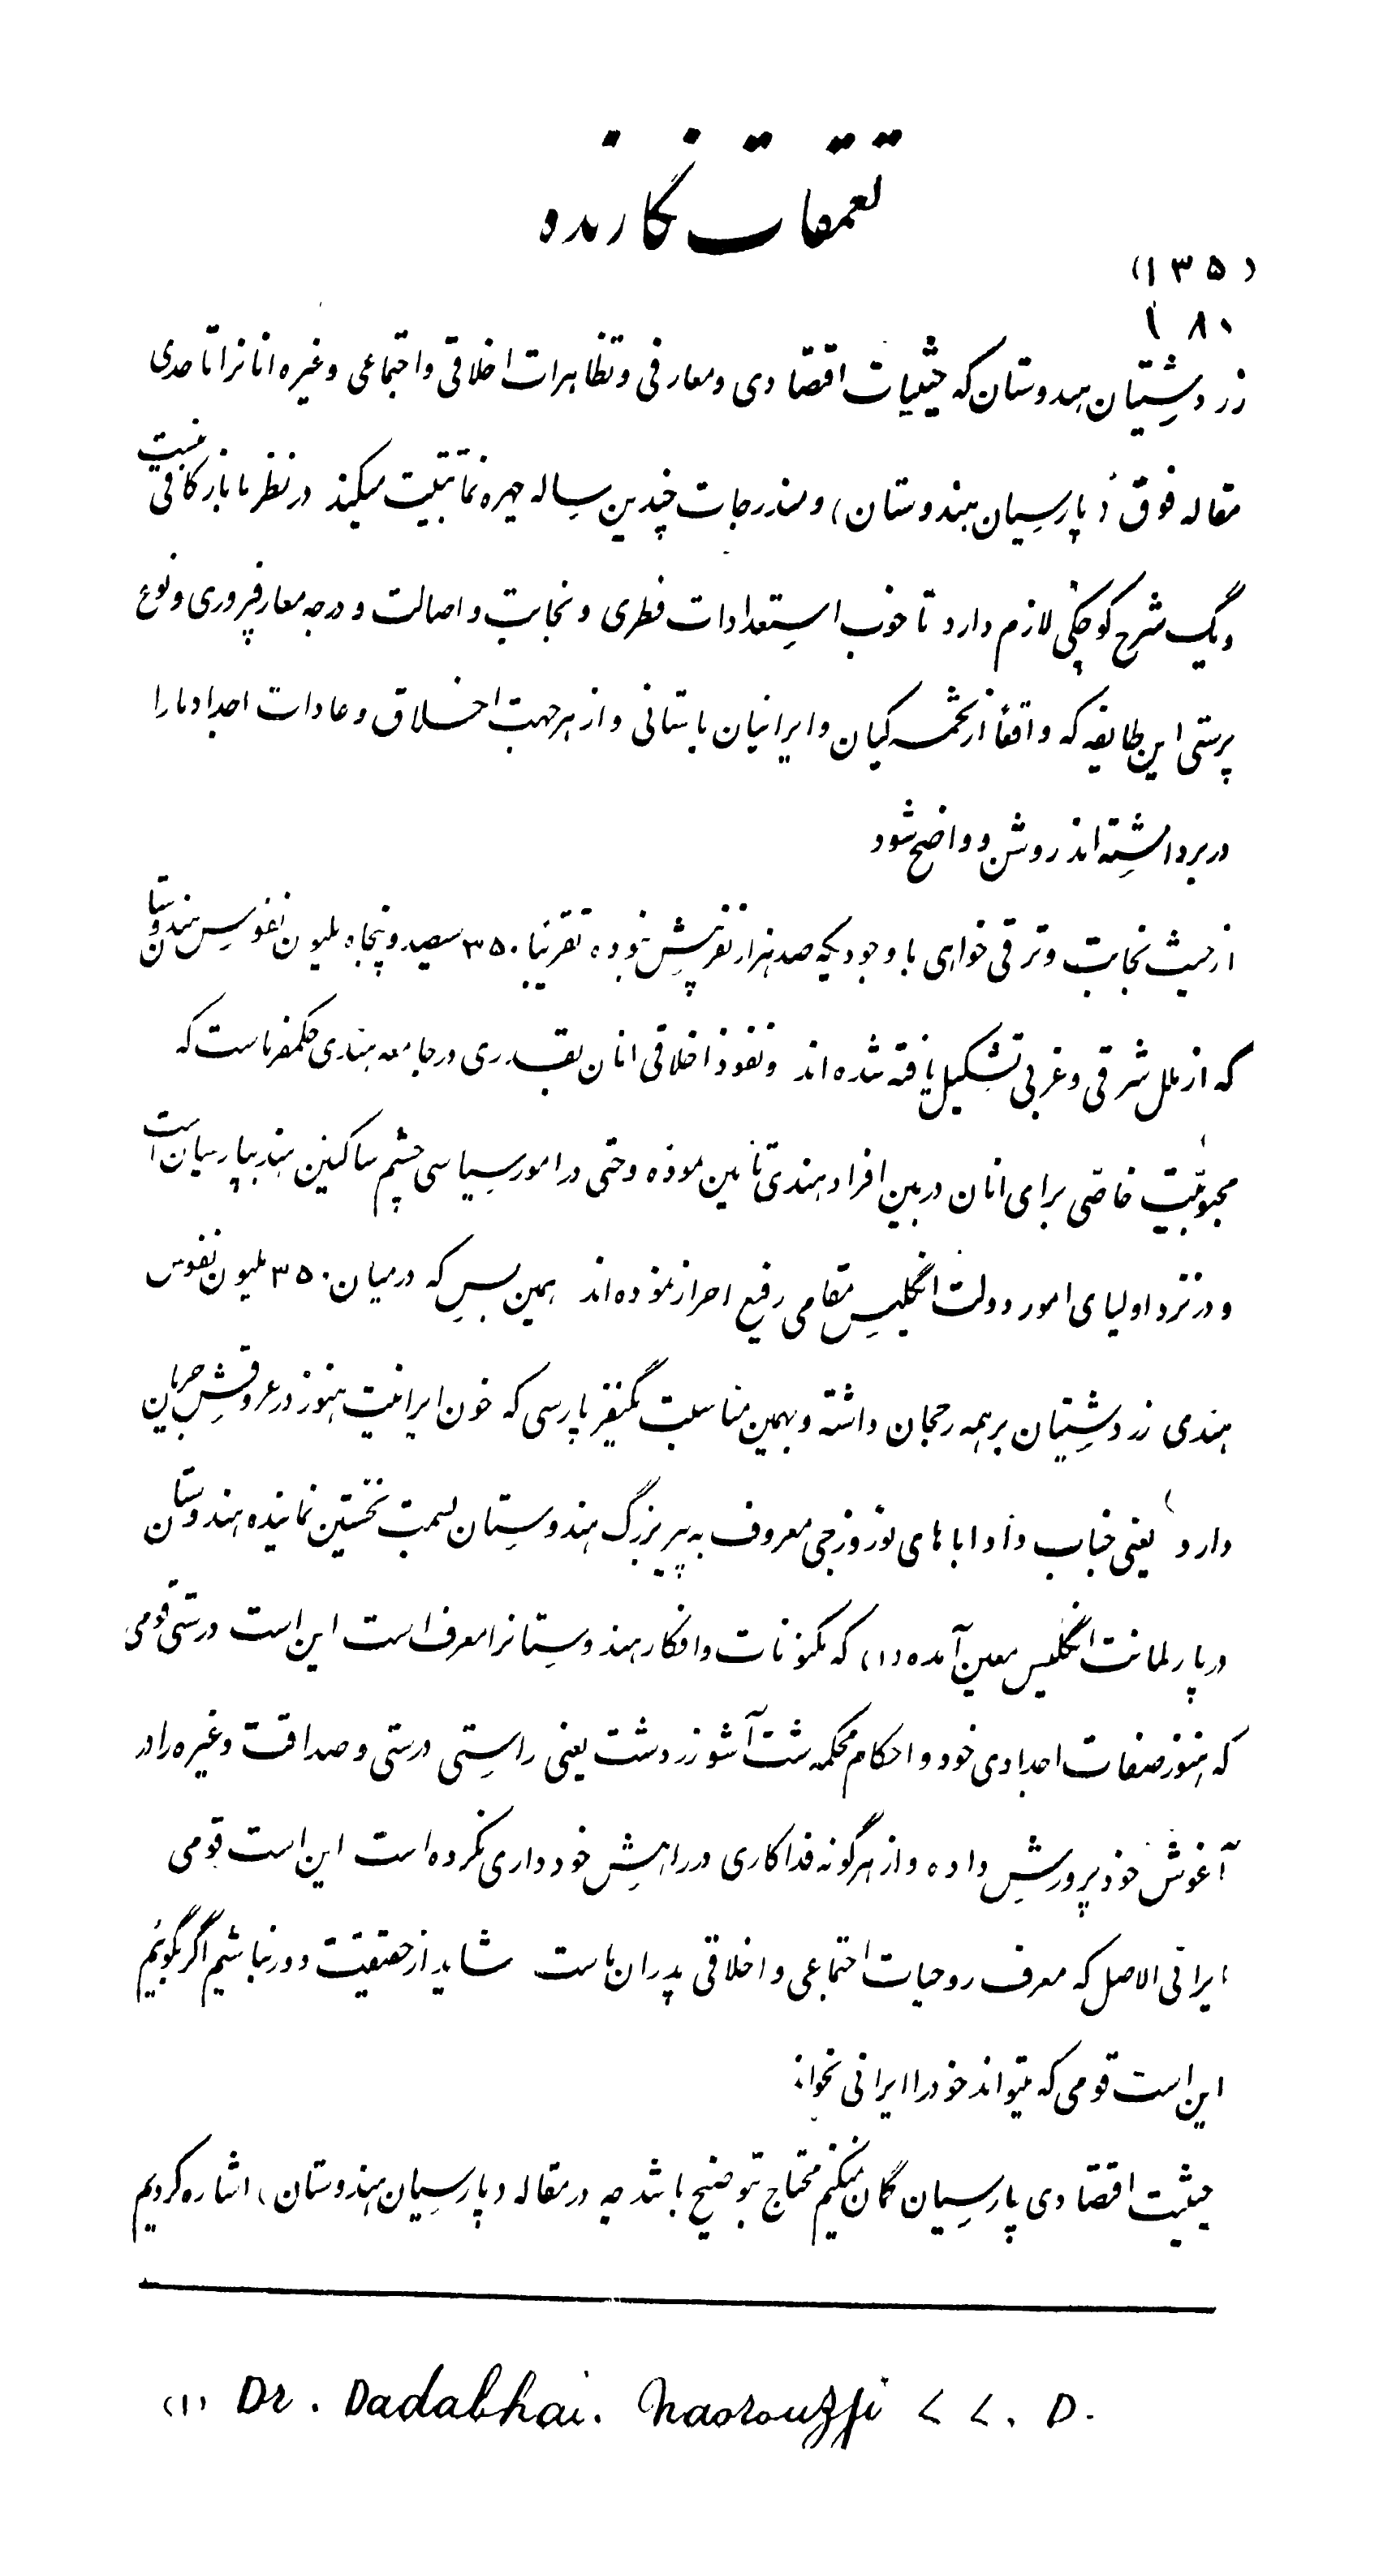 تعمقات نگارنده
(۱۳۵)
(۱۸
زردشتیان هندوستان که حیثیات اقتصادی و معارفی و تظاهرات اخلاقی و اجتماعی و غیره انانرا تا حدی
مقاله فوق (پارسیان هندوستان) و مندرجات چندین ساله چهره نما تثبیت میکند در نظر ما باز کافی نیست
و یک شرح کوچکی لازم دارد تا خوب استعدادات فطری و نجابت و اصالت و درجه معارفپروری و نوع
پرستی این طایفه که واقعاً از تخمه کیان و ایرانیان باستانی و از هر جهت اخلاق و عادات اجداد ما را
در بر داشته اند روشن و واضح شود
از حیث نجابت و ترقی خواهی با وجودیکه صد هزار نفر بیش نبوده تقریبا ۳۵۰ سیصد و پنجاه ملیون نفوس هندوستان
که از ملل شرقی و غربی تشکیل یافته شده اند و نفوذ اخلاقی انان بقدری در جامعه هندی حکمفرماست که
محبوبیت خاصی برای انان در بین افراد هندی تامین نموده و حتی در امور سیاسی چشم ساکنین هند بپارسیان است
و در نزد اولیای امور دولت انگلیس مقامی رفیع احراز نموده اند همین بس که در میان ۳۵۰ ملیون نفوس
هندی زردشتیان بر همه رجحان داشته و بهمین مناسبت یکنفر پارسی که خون ایرانیت هنوز در عروقش جریان
دارد یعنی جناب دادابا های نوزوزجی معروف به پیر بزرگ هندوستان بسمت نخستین نماینده هندوستان
در پارلمانت انگلیس معین آمده (۱) که مکنونات و افکار هندوستانرا معرف است این است درستی قومی
که هنوز صفات اجدادی خود و احکام محکمه شت آشو زردشت یعنی راستی درستی و صداقت و غیره را در
آغوش خود پرورش داده و از هرگونه فداکاری در راهش خودداری نکرده است این است قومی
ایرانی الاصل که معرف روحیات اجتماعی و اخلاقی پدران ماست شاید از حقیقت دور نباشیم اگر بگوئیم
این است قومی که میتواند خود را ایرانی بخواند
حیثیت اقتصادی پارسیان گمان نمیکنم محتاج بتوضیح باشد چه در مقاله (پارسیان هندوستان) اشاره کردیم
(۱) Dr. Dadabhai. Naorouzji L L. D.